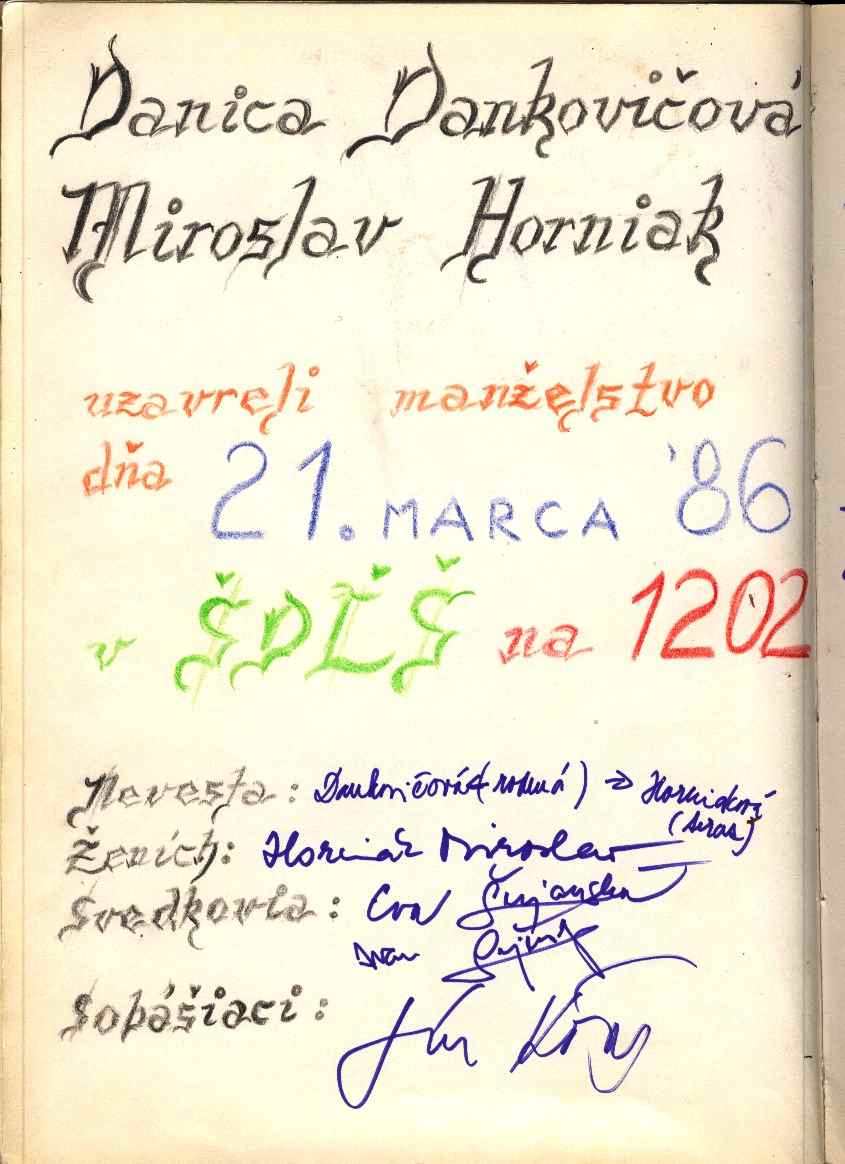 Danica Dankovičová
Miroslav Horniak
uzavreli manželstvo
dňa 21. MARCA '86
v ŠDĽŠ na 1202
Nevesta: Dankovičová (rodená) → Horniaková
(teraz)
Ženích: Horniak Miroslav
Svedkovia: Eva
Ivan
Sobášiaci: